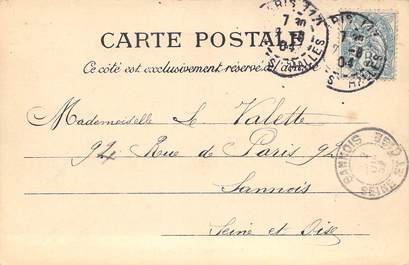 CARTE POSTALE
Ce côté est exclusivement réservé à l'adresse
Mademoiselle Le Valette
92 Rue de Paris 92
Sannois
Seine et Oise
SANNOIS
SEINE ET OISE